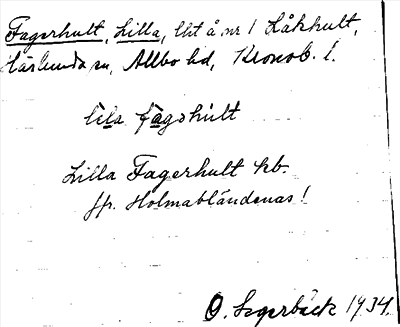 Fagerhult, Lilla, lht å nr 1 Kåkhult,
Härlunda sn, Allbo hd, Kronob. l.
lila fagshult
Lilla Fagerhult kb.
jfr. Holmabländenas!
O. Segerbäck 1934.